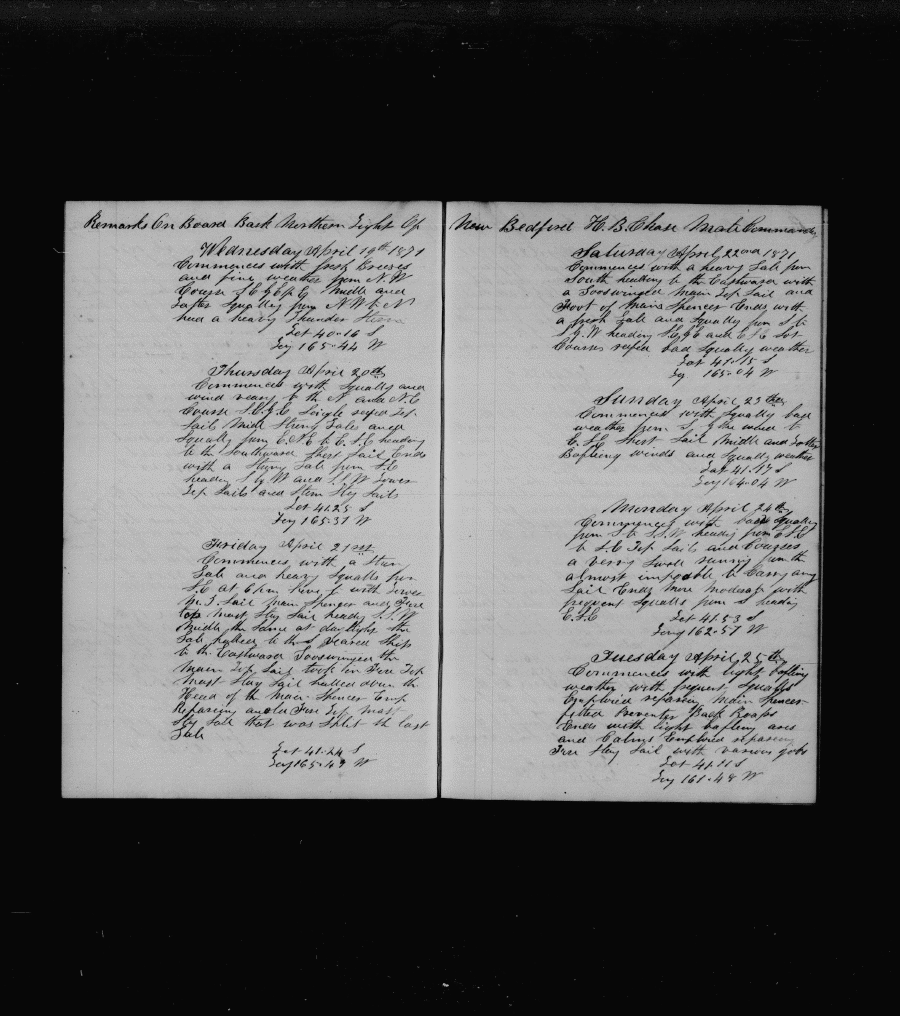 Remarks On Board Bark Northern Light Of
Wednesday April 19th 1871
Commences with fresh Breeses
and fine weather from N.W
Course S.E & E Middle and
Latter Squally from N.W & N
had a heavy Thunder Storm
Lat 40-16 S
Log 165-44 W
Thursday April 20th
Commences with Squally and
wind veary to the N and N.E
Course S.E.& E Single reefed Top
Sails Middle Strong Gales and
Squally from E.N.E to E.S.E heading
to the Southward Short Sail Ends
with a Strong Gale from S.E
heading S by W and S.S.W Lower
Top Sails and Stem Stay Sails
Lat 41.25 S
Log 165-37 W
Friday April 21st
Commences with a Strong
Gale and heavy Squalls from
S.E at 6 hove to with Lower
M.T. Sail Main Spencer and Fore
top Mast Stay Sail heady S.S.W
Middle the Same at daylight the
Gale hulled to the S Weared Ship
to the Eastward Goosewinged the
Main Top Sail took in Fore Top
Mast Stay Sail hulled down the
Head of the Main Spencer Emp
Reparing an old Fore Top Mast
Stay Sail that was Split the last
Gale
Lat 41-24 S
Log 165-49 W
New Bedford H. B. Chase Mate Commands
Saturday April 22nd 1871
Commences with a heavy Gale from
South heading to the Eastward with
a Gooswinged Main Top Sail and
Foot of Main Spencer Ends with
a fresh Gale and Squally from S to
S.W heading S.E & E and E.S.E Set
Courses reefed bad Squally weather
Lat 41-15 S
Log 165-04 W
Sunday April 23rd
Commences with Squally bad
weather from S. by the wind to
E.S.E Short Sail Middle and Latter
Bafling winds and Squally weather
Lat 41-17 S
Log 164-04 W
Monday April 24th
Commences with bad Squally
from S to S.S.W heading from E.S.E
to S.E Top Sails and Courses
a verry Swell running from the
almost impossible to Carry any
Sail Ends more Moderate with
frequent Squalls from S heading
E.S.E Lat 41.53 S
Long 162-57 W
Tuesday April 25th
Commences with light bafling
weather with frequent Squalls
Employed reparing Main Spencer
fitted Preventer Back Roaps
Ends with light bafling airs
and Calms Employed reparing
Fore Stay Sail with various jobs
Lat 41.11 S
Log 161-48 W